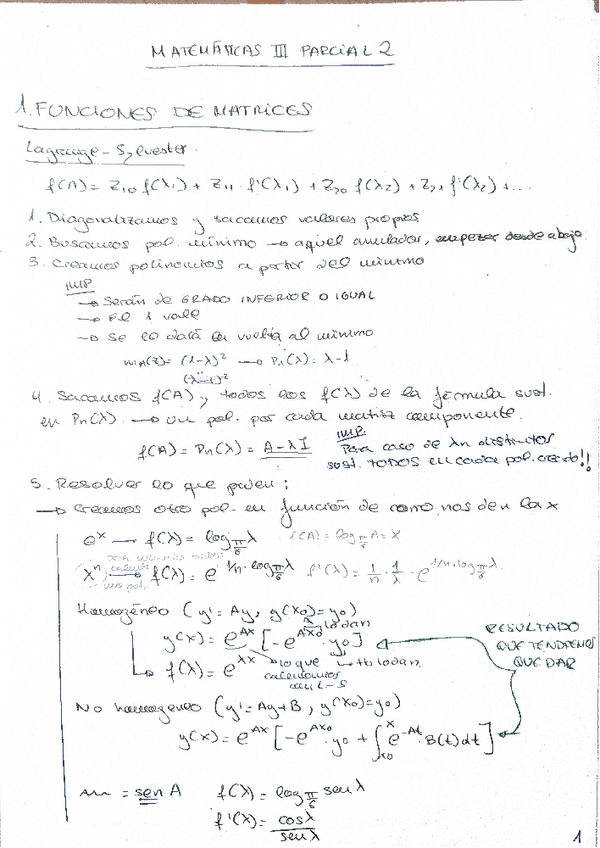 MATEMÁTICAS III PARCIAL 2
1. FUNCIONES DE MATRICES
Lagrange - Sylvester.
f(A) = Z₁₀ f(λ₁) + Z₁₁ · f'(λ₁) + Z₂₀ f(λ₂) + Z₂₁ f'(λ₂) + ...
1. Diagonalizamos y sacamos valores propios
2. Buscamos pol. mínimo → aquel anulador, empezar desde abajo
3. Creamos polinomios a partir del mínimo
IMP.
→ Serán de GRADO INFERIOR O IGUAL
→ El 1 vale
→ Se le dará la vuelta al mínimo
(1-λ)² → Pn(λ): λ-1
4. Sacamos f(A) y todos los f(λ) de la fórmula sust.
en Pn(λ). → Un pol. por cada matriz componente.
f(A) = Pn(λ) = A - λI
IMP.
Para caso de λn distintos
sust. TODOS en cada pol. creado!!
5. Resolver lo que piden:
→ Creamos otro pol. en función de como nos den la x
eˣ → f(λ) = log π/6 λ f(A) = log π/6 A = X
xⁿ → f(λ) = e^1/n · log π/6 λ f'(λ) = 1/n · 1/λ · e^1/n · log π/6 λ
Homogéneo (y' = Ay, y(x₀) = y₀)
lo dan
y(x) = e^Ax [-e^Ax₀ · y₀]
f(λ) = e^λx lo que calculamos con L-S
lo dan
RESULTADO
QUE TENDREMOS
QUE DAR
No homogéneo (y' = Ay + B, y(x₀) = y₀)
y(x) = e^Ax [-e^Ax₀ · y₀ + ∫x₀ˣ e^-At · B(t) dt]
= sen A f(λ) = log π/6 sen λ
f'(λ) = cos λ / sen λ
1